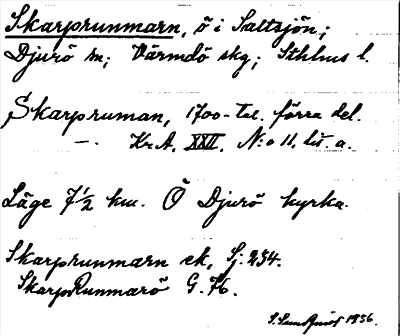 Skarprunmarn, ö i Saltsjön;
Djurö sn; Värmdö skg; Sthlms l.
Skarpruman, 1700-tal. förra del.
—. Kr.A. XXII. N:o 11, lit. a.
Läge 7½ km. Ö Djurö kyrka.
Skarprunmarn ek, Sj. 254.
SkarpRunmarö G. 76.
1956.